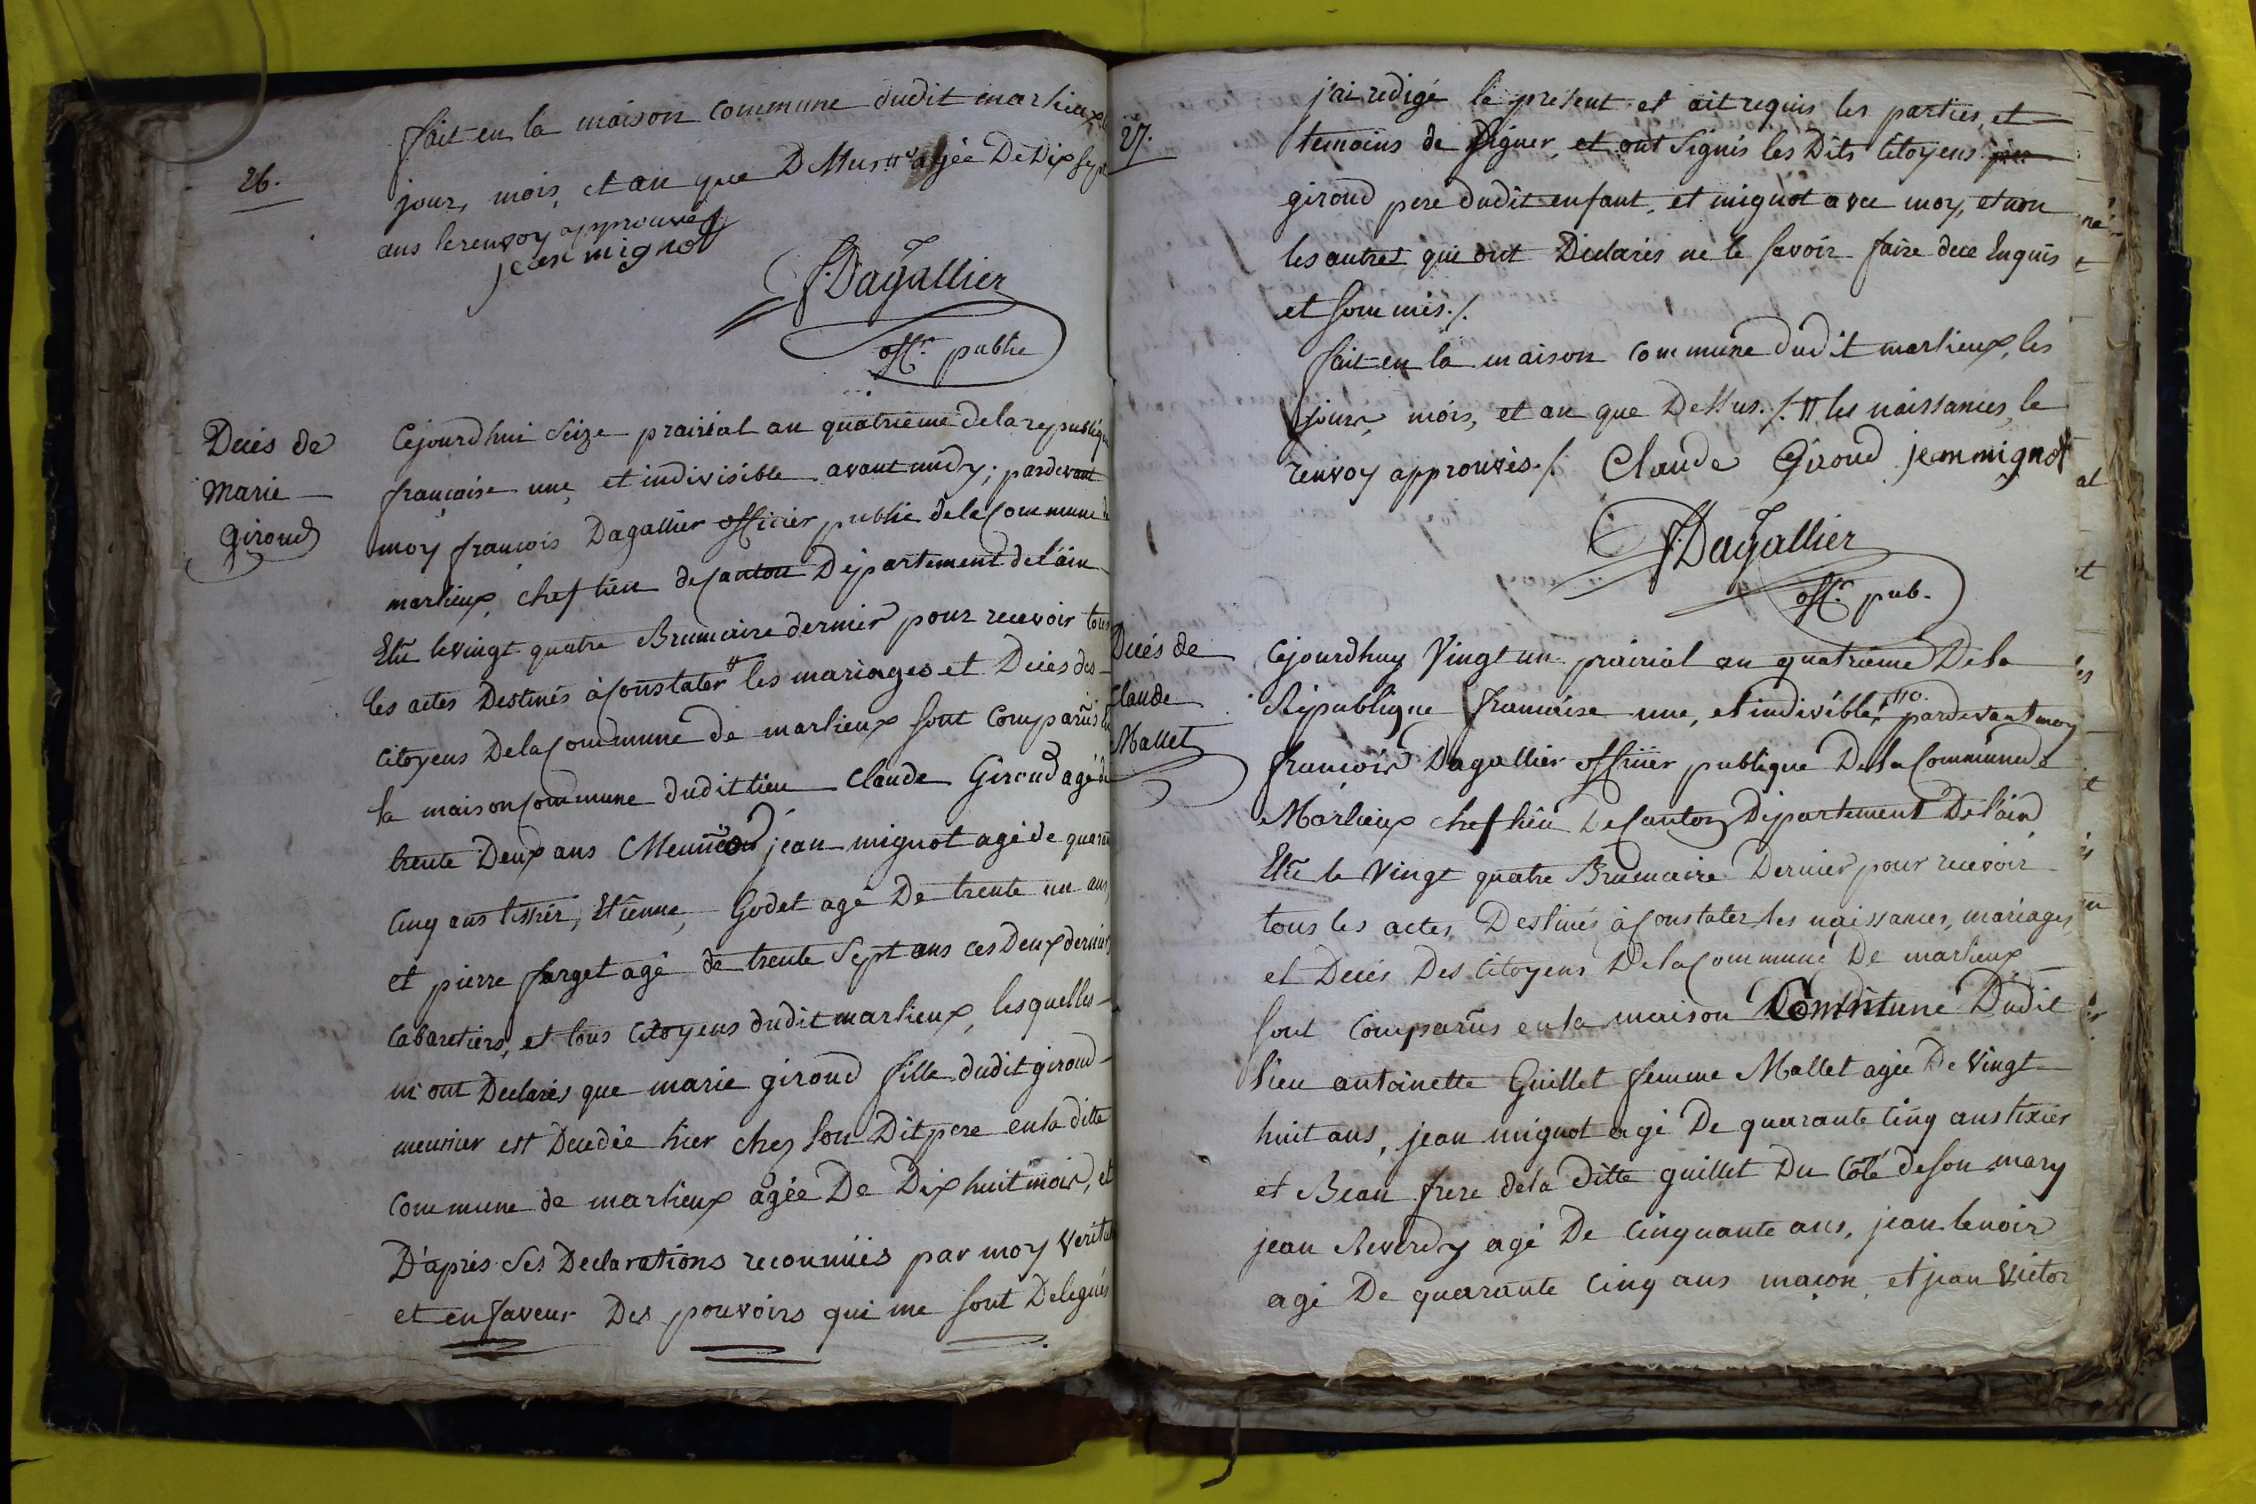 26.
fait en la maison commune dudit marlieux
jour, mois, et an que Dessus # agée De Dix sept
ans le renvoy approuvé
jean mignot
f. Dagallier
off.r public
Decés de
Marie
Giroud
Cejourdhui Seize prairial an quatrieme dela republique
française une, et indivisible avant midy; pardevant
moy françois Dagallier officier public dela Commune de
marlieux, chef lieu de Canton Département del'ain
Elû le vingt quatre Brumaire dernier pour recevoir tous
les actes Destinés à Constater # les mariages et Decés des
Citoyens Dela Commune de marlieux sont Comparûs en
la maison Commune dudit lieu Claude Giroud agé de
trente Deux ans Meunier jean mignot agé de quarante
Cinq ans tissier, Etienne, Godet agé De trente un ans,
et pierre farget agé de trente Sept ans ces Deux derniers
Cabaretiers, et tous Citoyens dudit marlieux, lesquelles
m'ont Declarés que marie giroud fille dudit giroud
meunier est Decedée hier chez son Dit pere en la ditte
Commune de marlieux agée De Dix huit mois, et
D'aprés Ses Declarations reconnües par moy verita
et en faveur Des pouvoirs qui me sont Delegués
27.
j'ai redigé le présent et ait requis les parties, et
temoins de Signer, et ont Signés les Dits Citoyens
giroud pere dudit enfant, et mignot avec moy, et non
les autres qui ont Declarés ne le savoir faire dece Enquis
et sommés./.
fait en la maison commune dudit marlieux, les
jour, mois, et an que Dessus./. # les naissances, le
renvoy approuvés./. Claude Giroud jean mignot
f. Dagallier
off.r pub.
Decés de
Claude
Mallet
Cejourdhuy Vingt un prairial an quatrieme Dela
République française une, et indivisible, pardevant moy
françois Dagallier officier publique Dela Commune de
Marlieux chef lieu De Canton Département De l'ain
Elû le Vingt quatre Brumaire Dernier pour recevoir
tous les actes Destinés à Constater les naissances, mariages,
et Decés Des Citoyens Dela Commune De marlieux
sont Comparûs en la maison Commune Dudit
lieu antoinette Guillet femme Mallet agée De Vingt
huit ans, jean mignot agé De quarante Cinq ans tixier
et Beau frere dela ditte guillet Du Côté de son mary
jean Reverdy agé De Cinquante ans, jean lenoir
agé De quarante Cinq ans maçon, et jean Victor